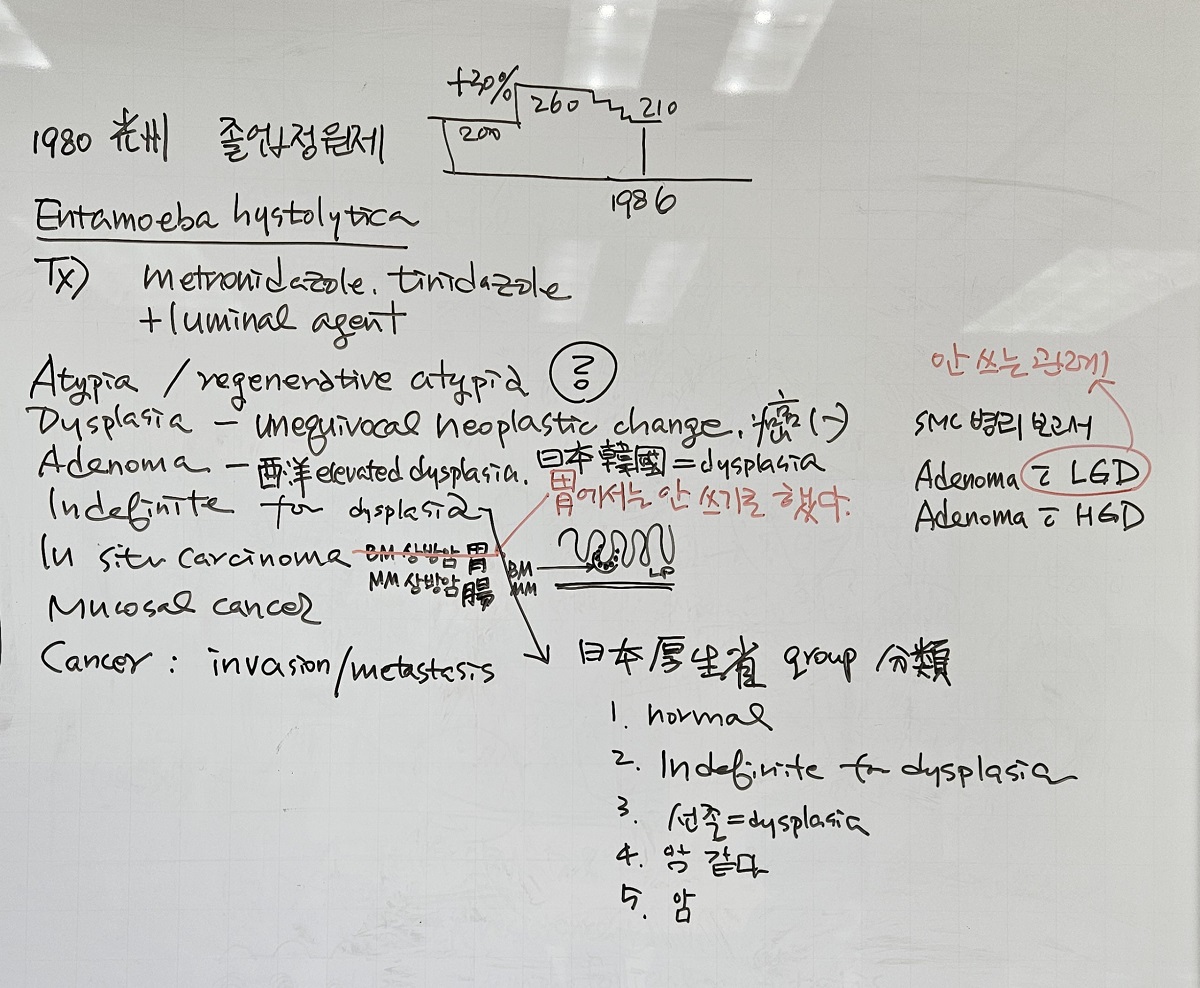 +30%
260
210
200
1980 光州 졸업정원제
1986
Entamoeba hystolytica
Tx) metronidazole. tinidazole
+luminal agent
Atypia / regenerative atypia ?
Dysplasia - unequivocal neoplastic change. 癌(-)
Adenoma - 西洋 elevated dysplasia. 日本 韓國 = dysplasia
Indefinite for dysplasia
胃에서는 안 쓰기로 했다.
In situ carcinoma BM 상방암 胃
MM 상방암 腸
BM
MM
LP
Mucosal cancer
Cancer : invasion/metastasis
안 쓰는 관례
SMC 병리 보고서
Adenoma c̄ LGD
Adenoma c̄ HGD
日本 厚生省 group 分類
1. normal
2. Indefinite for dysplasia
3. 선종=dysplasia
4. 암 같다
5. 암